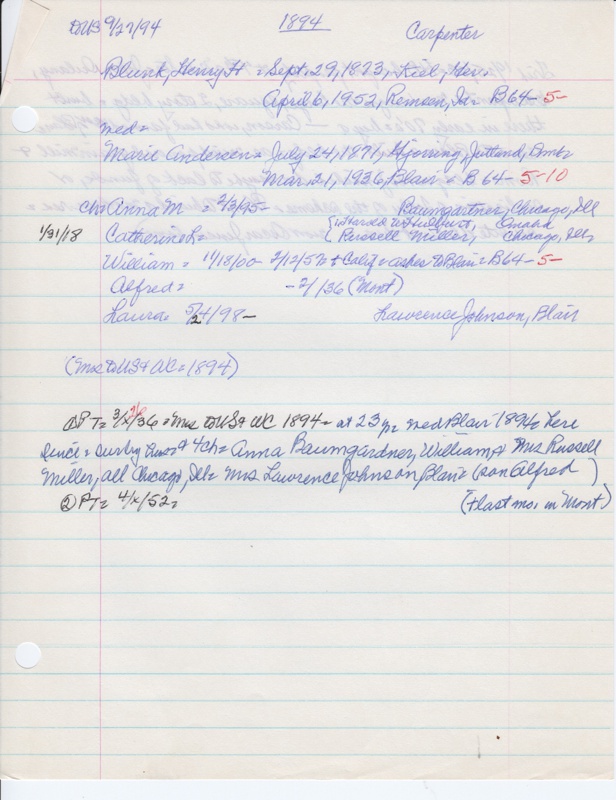 DUB 9/27/94 1894 Carpenter
Blunk, Henry H = Sept. 29, 1873, Kiel, Ger.
April 6, 1952, Remsen, Ia = B64-5-
med =
Marie Andersen = July 24, 1871, Hjorring, Jutland, Dmk
Mar. 21, 1936, Blair = B 64-5-10
ch = Anna M = 2/3/95- Baumgartner, Chicago, Ill
1/31/18 Catherine L = { 1 Harold W. Hurlburt, Omaha
( Russell Miller, Chicago, Ill
William = 11/18/00- 2/12/57 + Calif = ashes to Blair = B64-5-
Alfred = -2/36 (Mont)
Laura = 5/4/98- Lawrence Johnson, Blair
(Mrs to US & WC = 1894)
① PT = 3/26/36 = Mrs to US & WC 1894 = at 23 yr med Blair 1894 = here
since = surv by Hus & 4 ch = Anna Baumgardner, William, & Mrs Russell
Miller, all Chicago, Ill = Mrs Lawrence Johnson, Blair = (son Alfred )
② PT = 4/x/52 = (+ last mo. in Mont)